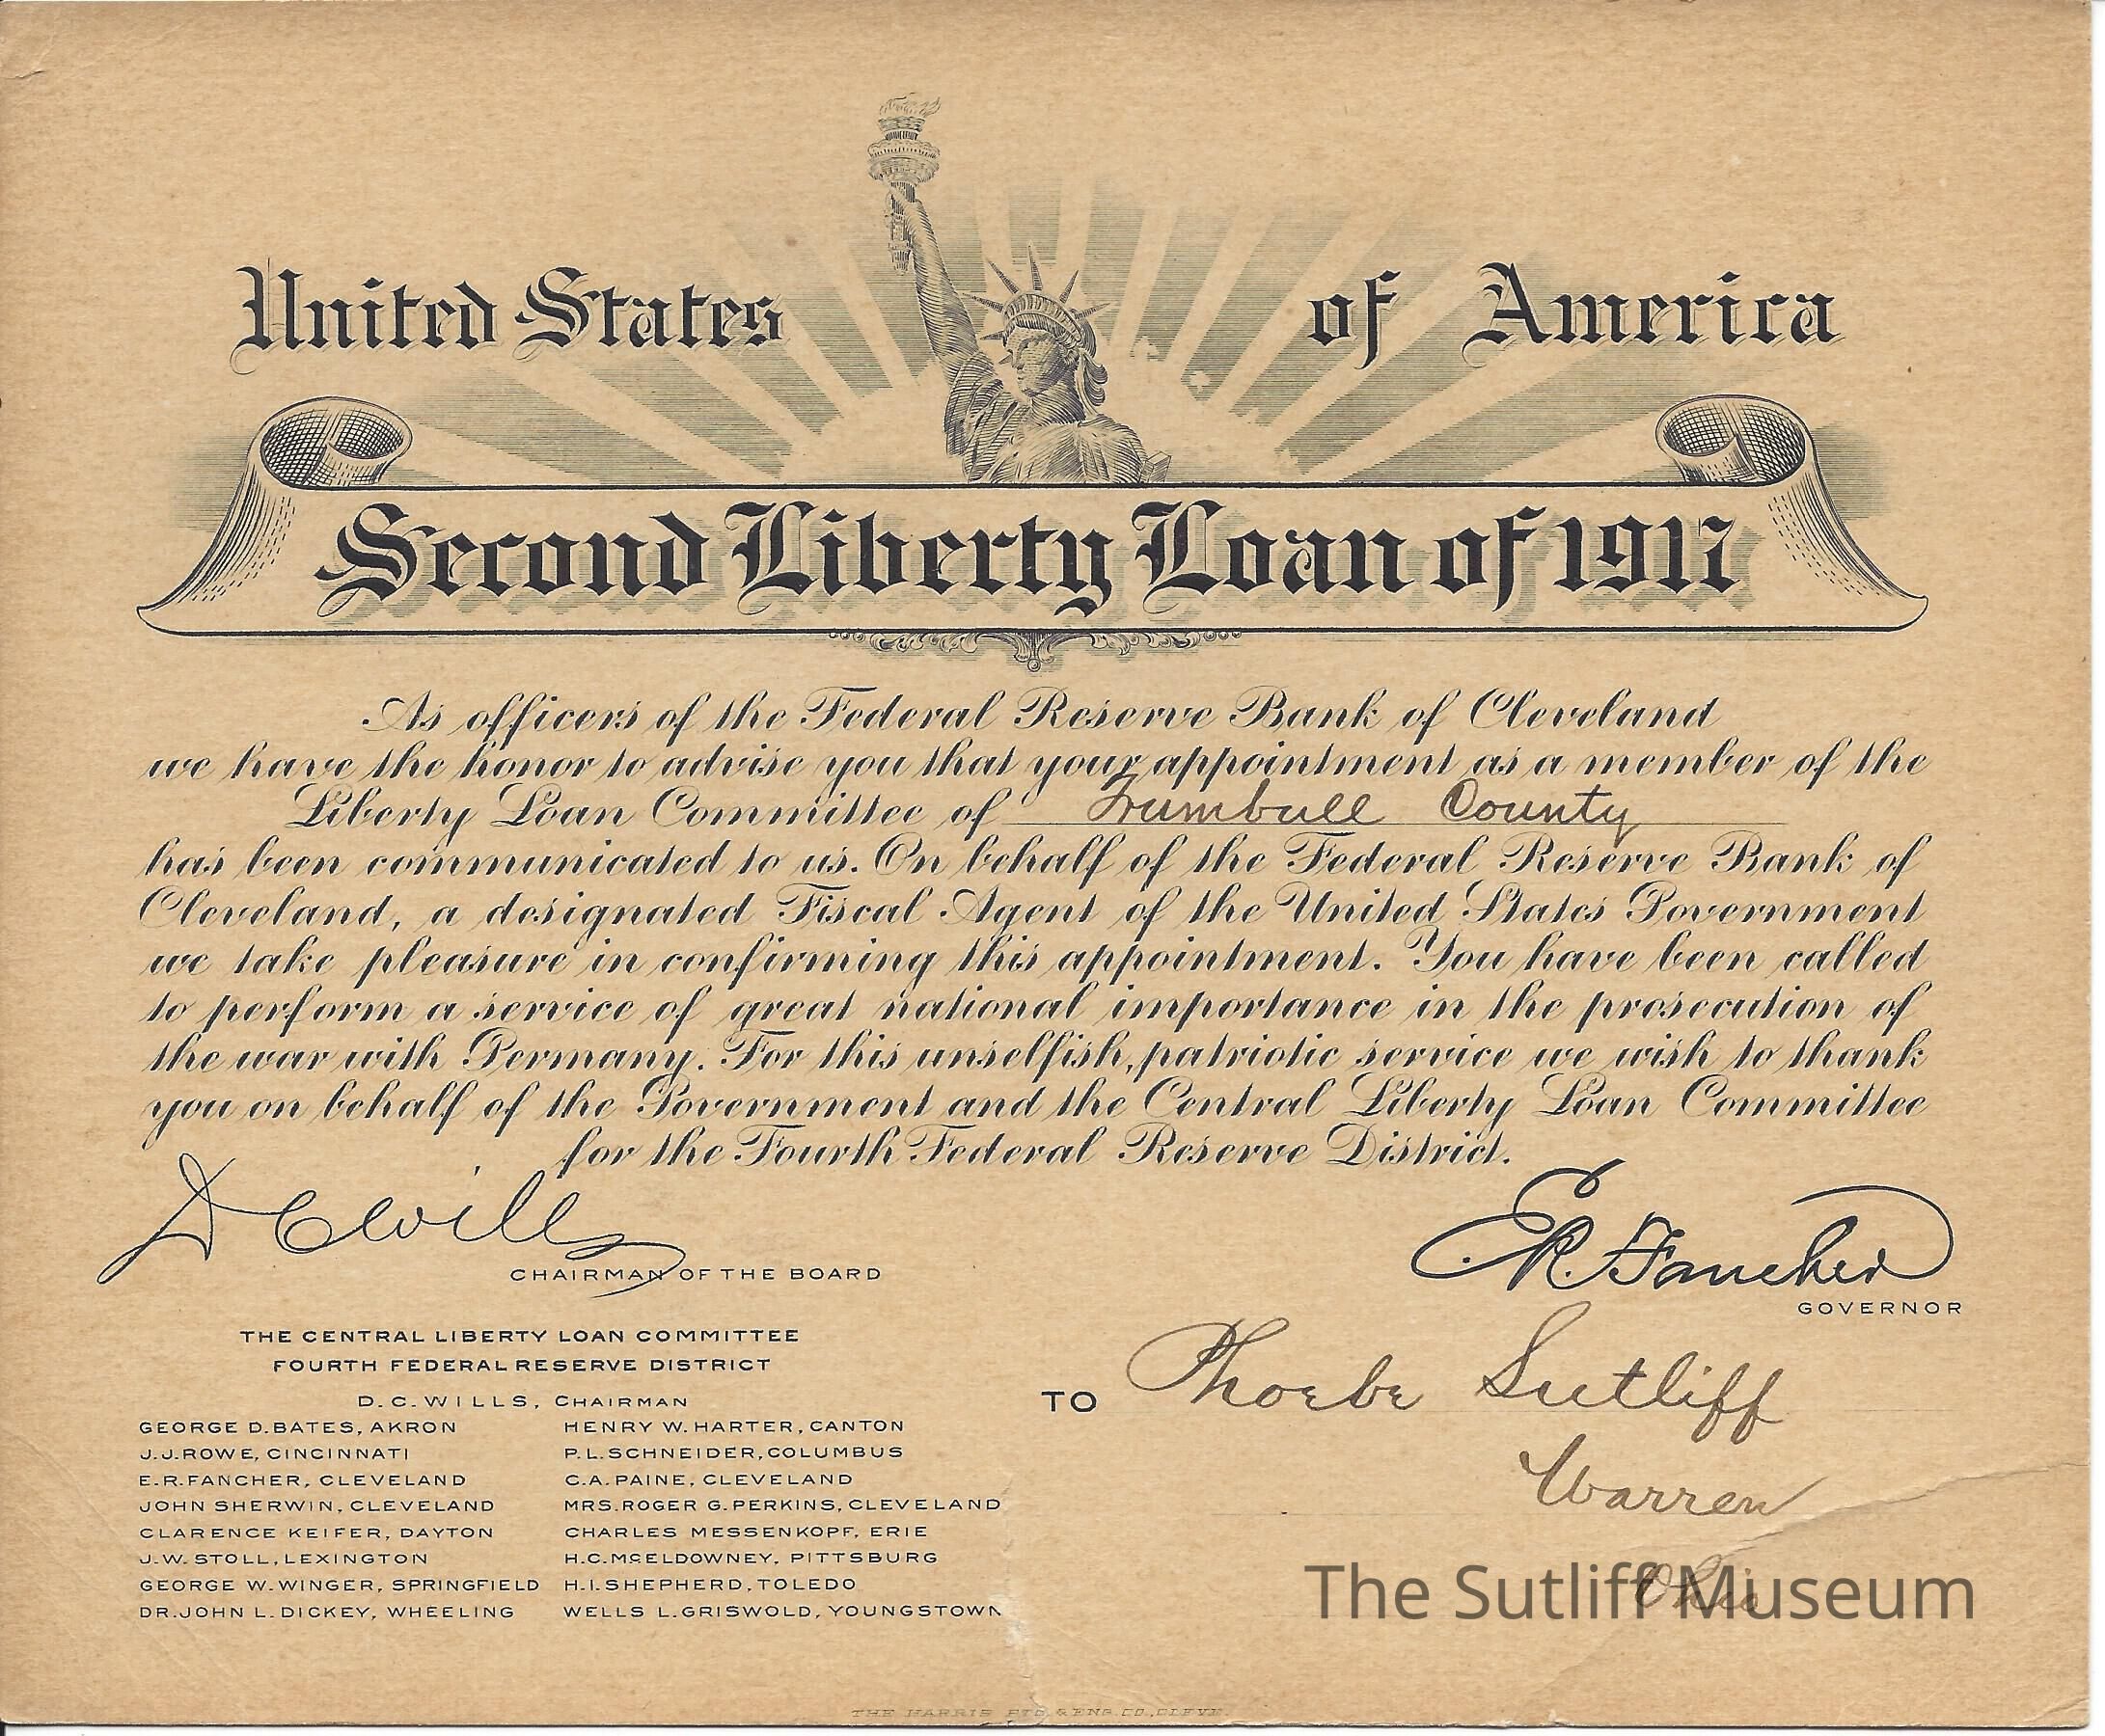 United States of America
Second Liberty Loan of 1917
As officers of the Federal Reserve Bank of Cleveland
we have the honor to advise you that your appointment as a member of the
Liberty Loan Committee of Trumbull County
has been communicated to us. On behalf of the Federal Reserve Bank of
Cleveland, a designated Fiscal Agent of the United States Government
we take pleasure in confirming this appointment. You have been called
to perform a service of great national importance in the prosecution of
the war with Germany. For this unselfish, patriotic service we wish to thank
you on behalf of the Government and the Central Liberty Loan Committee
for the Fourth Federal Reserve District.
D C Wills
CHAIRMAN OF THE BOARD
E.R. Fancher
GOVERNOR
THE CENTRAL LIBERTY LOAN COMMITTEE
FOURTH FEDERAL RESERVE DISTRICT
D.C. WILLS, CHAIRMAN
GEORGE D. BATES, AKRON
J.J. ROWE, CINCINNATI
E.R. FANCHER, CLEVELAND
JOHN SHERWIN, CLEVELAND
CLARENCE KEIFER, DAYTON
J.W. STOLL, LEXINGTON
GEORGE W. WINGER, SPRINGFIELD
DR. JOHN L. DICKEY, WHEELING
HENRY W. HARTER, CANTON
P.L. SCHNEIDER, COLUMBUS
C.A. PAINE, CLEVELAND
MRS. ROGER G. PERKINS, CLEVELAND
CHARLES MESSENKOPF, ERIE
H.C. McELDOWNEY, PITTSBURG
H.I. SHEPHERD, TOLEDO
WELLS L. GRISWOLD, YOUNGSTOWN
TO Phoebe Sutliff
Warren
Ohio
The Sutliff Museum
THE HARRIS PTG. & ENG. CO., CLEVE.